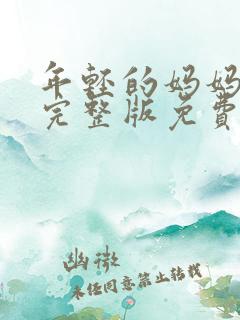 年轻的妈妈
完整版免费
幽微
未经同意禁止转载